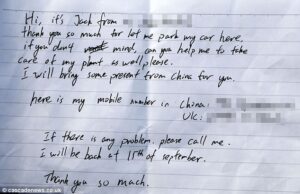 Hi, it's Jack from
thank you so much for let me park my car here.
if you don't mind, can you help me to take
care of my plant as well please.
I will bring some present from China for you.
here is my mobile number in China:
UK:
If there is any problem, please call me.
I will be back at 11th of september.
Thank you so mach.
© cascadenews.co.uk